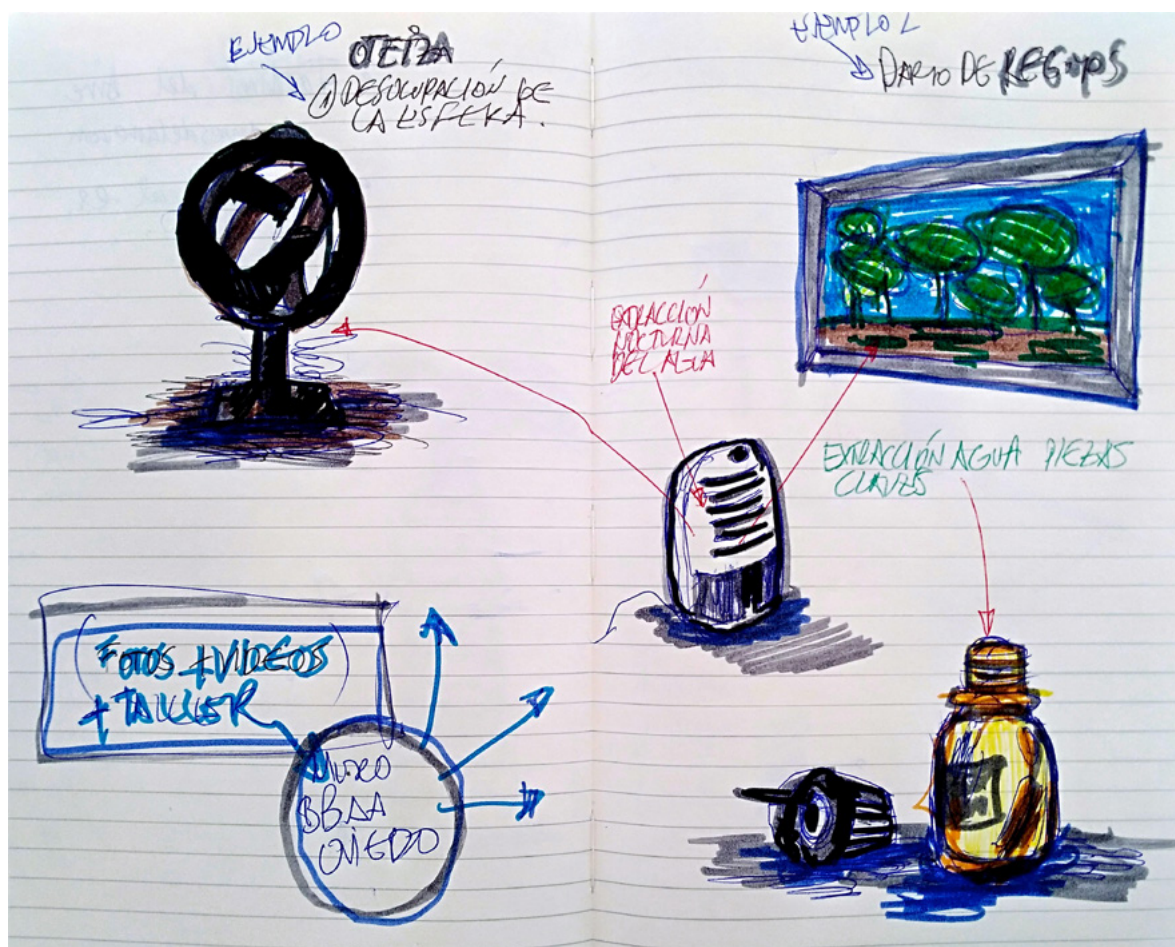 EJEMPLO
OTEIZA
① DESOCUPACIÓN DE
LA ESFERA.
EJEMPLO 2
DARIO DE REGOYOS
EXTRACCIÓN
NOCTURNA
DEL AGUA
EXTRACCIÓN AGUA PIEZAS
CLAVES
(FOTOS + VIDEOS)
+ TALLER
MUSEO
BBAA
OVIEDO